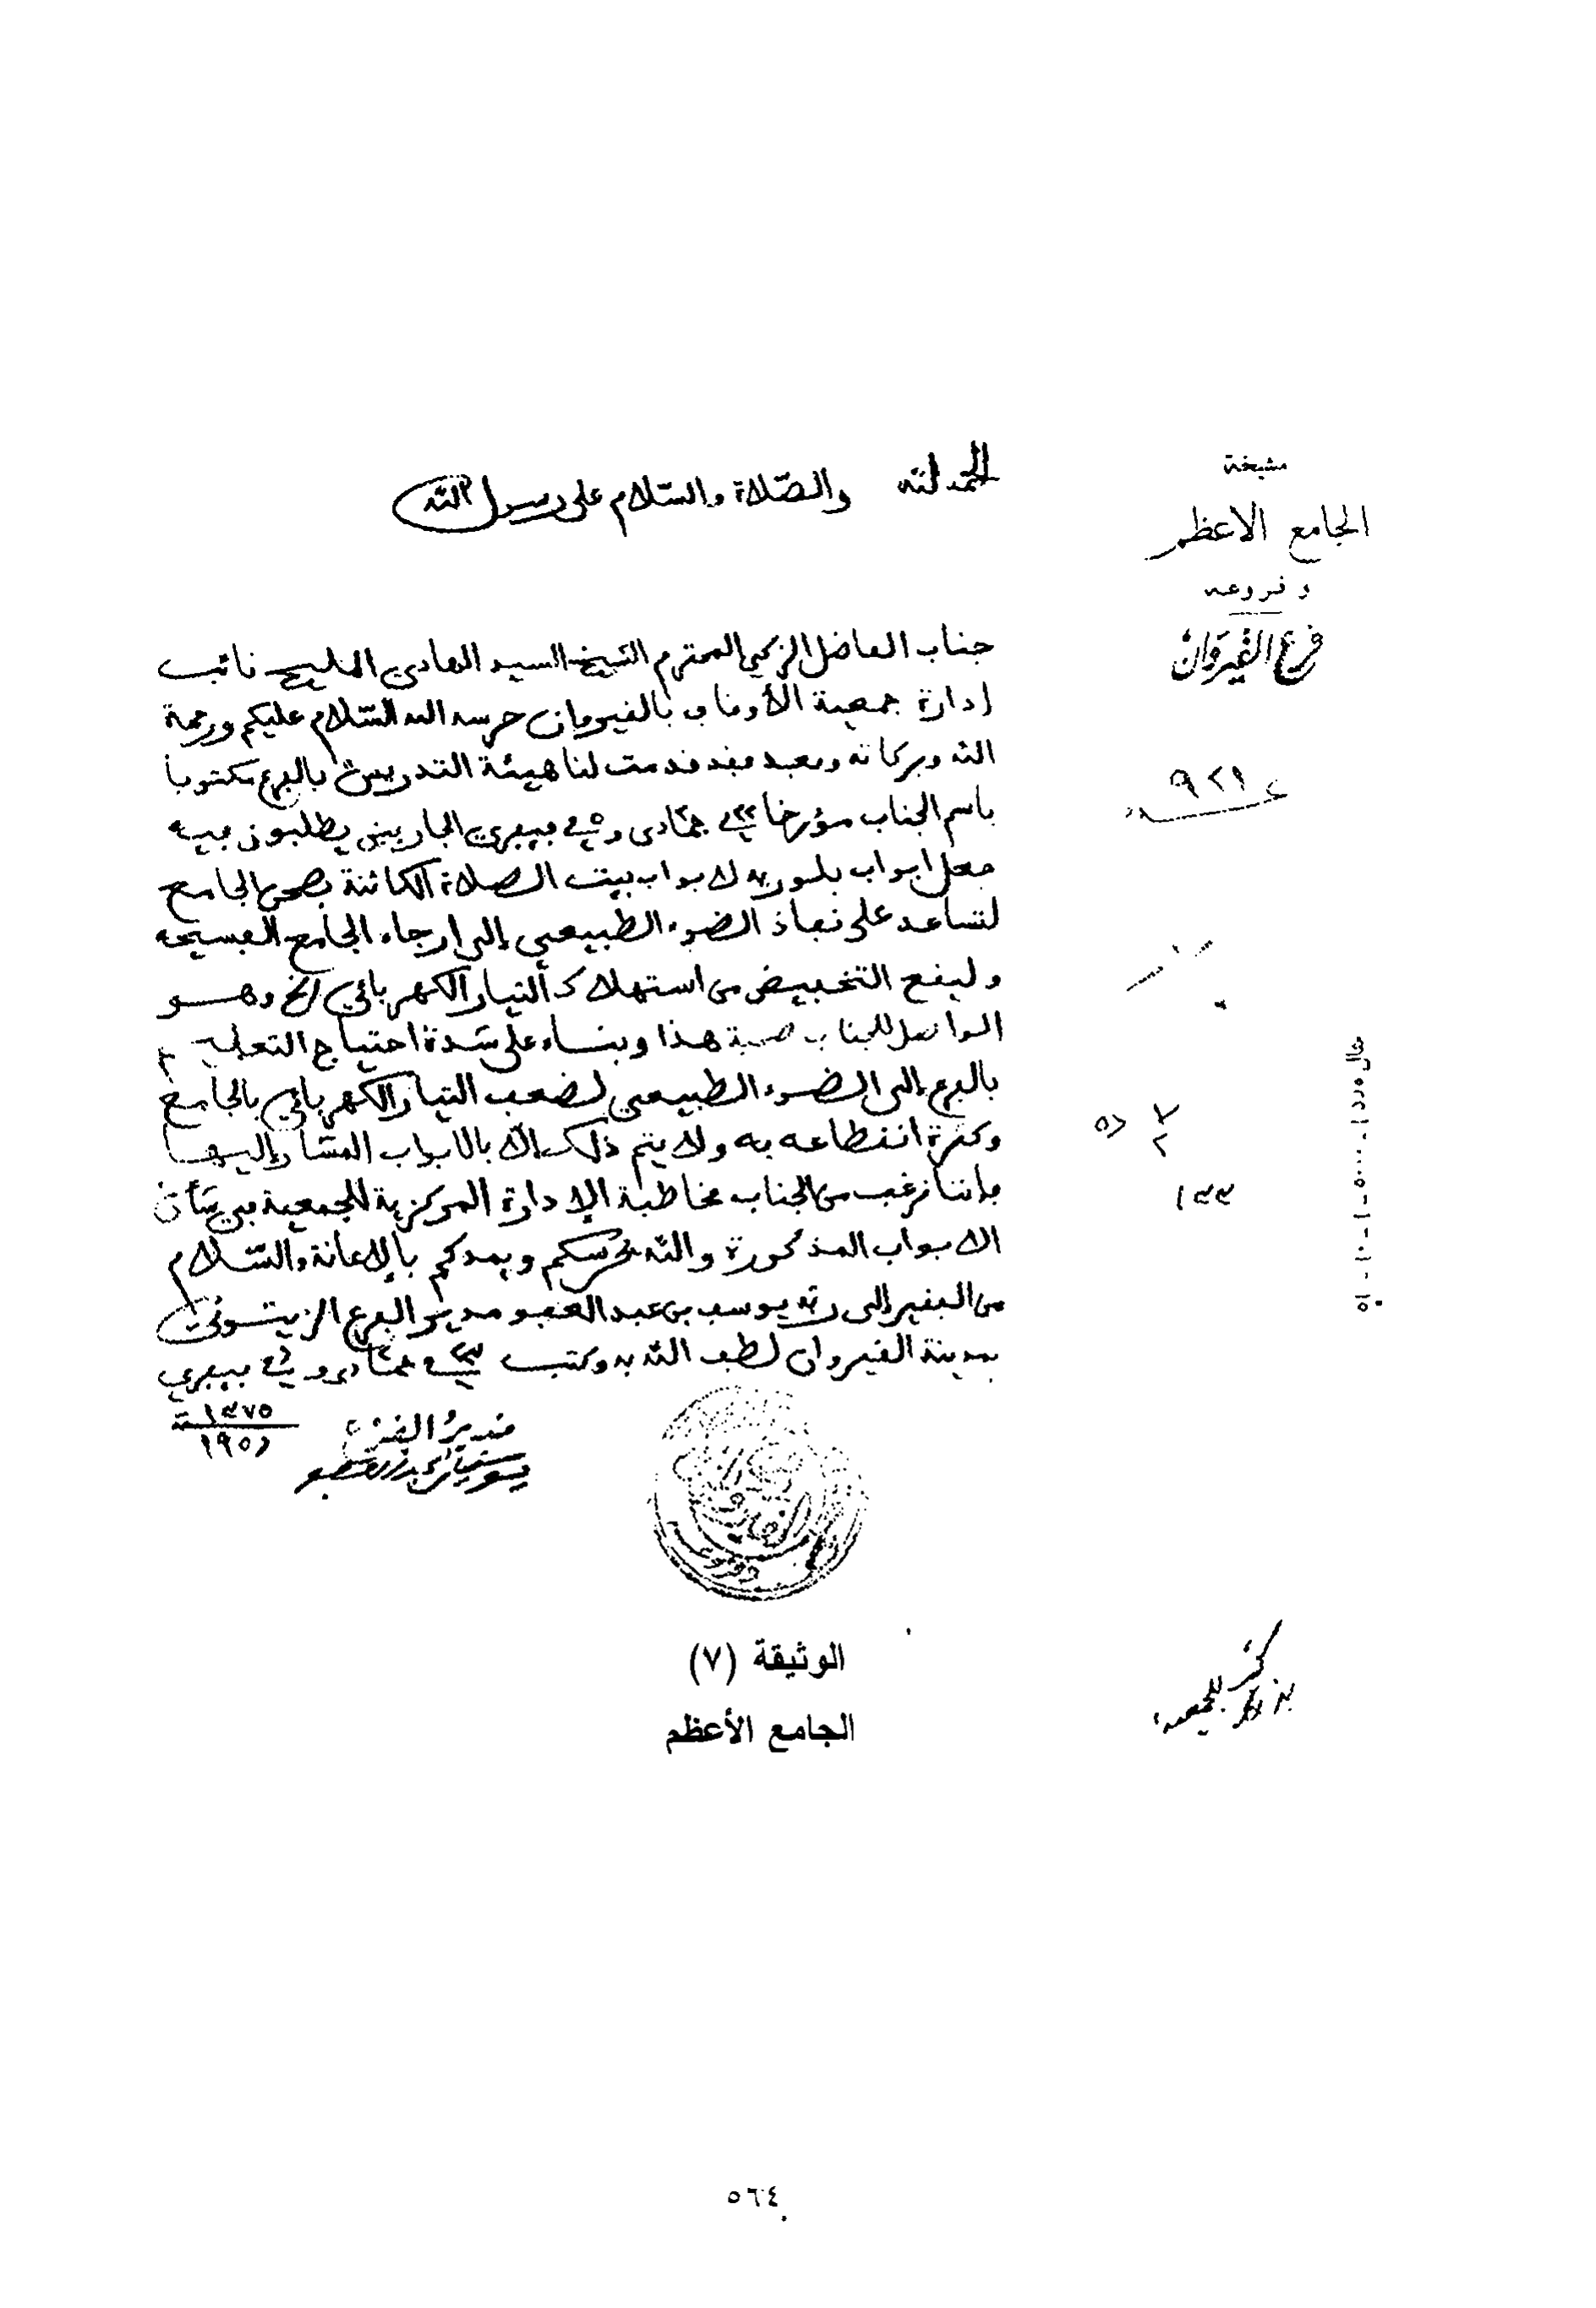 مشيخة
الجامع الاعظم
و فروعه
فرع القيروان
الحمد لله والصّلاة والسّلام على رسول الله
جناب الفاضل الزكي المحترم الشيخ السيد الهادي المليح نائب
إدارة جمعية الأوقاف بالقيروان حرسه الله السّلام عليكم ورحمة
الله وبركاته وبعد فقد قدمت لنا هيئة التدريس بالفرع مكتوبا
باسم الجناب مؤرخا في جمادى وفي فيفري الجاريين يطلبون فيه
جعل ابواب بلورية لابواب بيت الصلاة الكائنة بصحن الجامع
لتساعد على نفاذ الضوء الطبيعي إلى ارجاء الجامع الفسيحة
وليقع التخفيض من استهلاك التيار الكهربائي الخ وهو
الواصل للجناب صحبة هذا وبناء على شدة احتياج التعليم
بالفرع إلى الضوء الطبيعي لضعف التيار الكهربائي بالجامع
وكثرة انقطاعه به ولا يتم ذلك إلا بالأبواب المشار إليها
فإننا نرغب من الجناب مخاطبة الإدارة المركزية للجمعية في شأن
الابواب المذكورة والله يحرسكم ويمدكم بالإعانة والسّلام
من الفقير إلى ربه يوسف بن عبد العفو مدير الفرع الزيتوني
بمدينة القيروان لطف الله به وكتب في جمادى وفي فيفري
١٣٧٥
١٩٥٦
مدير الفرع
٩٢١
١٣٣
الوثيقة (٧)
الجامع الأعظم
٥٦٤